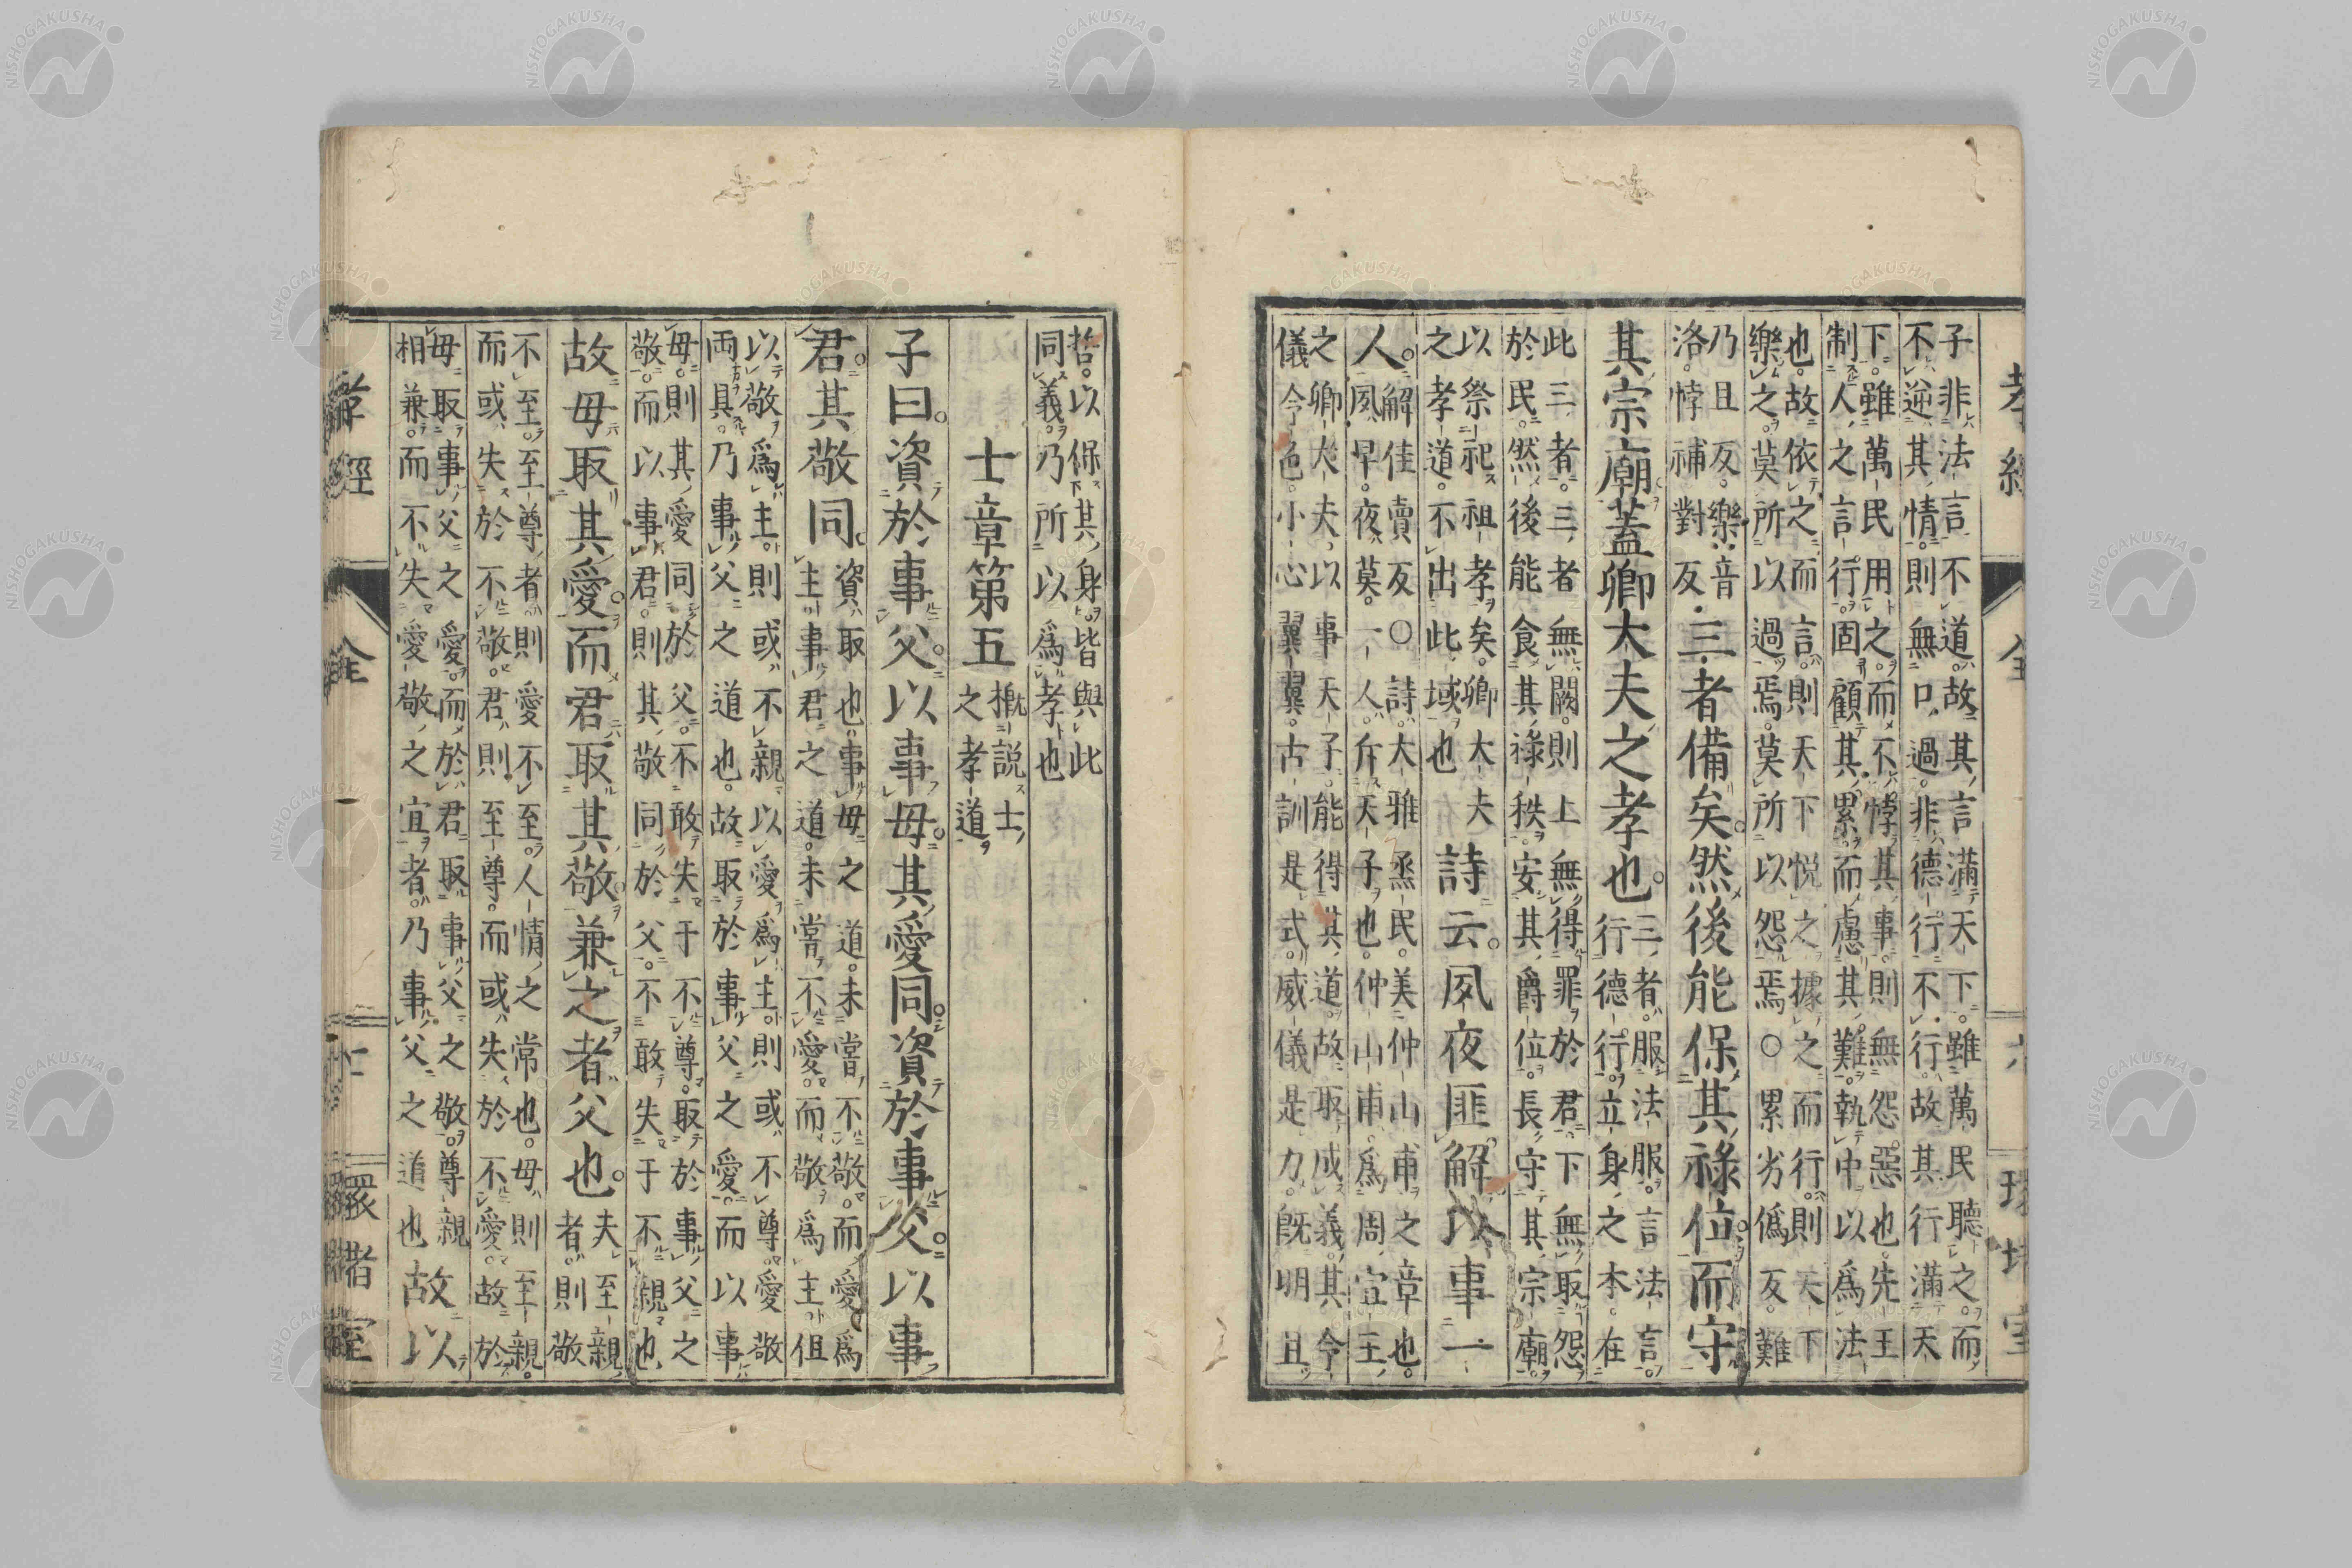 子非法言不道故其言滿天下雖萬民聽之而
不逆其情則無口過非德行不行故其行滿天
下雖萬民用之而不悖其事則無怨惡也先王
制人之言行固顧其累而慮其難執中以爲法
也故依之而言則天下悅之據之而行則天下
樂之莫所以過焉莫所以怨焉○累劣僞反難
乃且反樂音
洛悖補對反
三者備矣然後能保其祿位而守
其宗廟蓋卿大夫之孝也
三者服法服言法言
行德行立身之本在
此三者三者無闕則上無得罪於君下無取怨
於民然後能食其祿秩安其爵位長守其宗廟
以祭祀祖孝矣卿大夫
之孝道不出此域也
詩云夙夜匪解以事一
人
解佳賣反○詩大雅烝民美仲山甫之章也
夙早夜莫一人斥天子也仲山甫爲周宣王
之卿大夫以事天子能得其道故取成義其令
儀令色小心翼翼古訓是式威儀是力既明且
哲以保其身皆與此
同義乃所以爲孝也
士章第五
概說士
之孝道
子曰資於事父以事母其愛同資於事父以事
君其敬同
資取也事母之道未嘗不敬而愛爲
主事君之道未嘗不愛而敬爲主但
以敬爲主則或不親以愛爲主則或不尊愛敬
両具乃事父之道也故取於事父之愛而以事
母則其愛同於父不敢失于不尊取於事父之
敬而以事君則其敬同於父不敢失于不親也
故母取其愛而君取其敬兼之者父也
夫至親
者則敬
不至至尊者則愛不至人情之常也母則至親
而或失於不敬君則至尊而或失於不愛故於
母取事父之愛而於君取事父之敬尊親
相兼而不失愛敬之宜者乃事父之道也
故以
孝經
全
環堵室
NISHOGAKUSHA